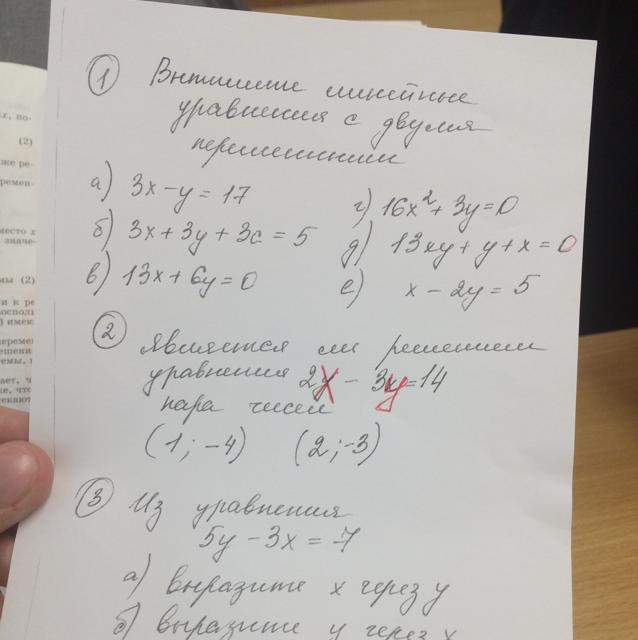 ① Выпишите линейные
уравнения с двумя
переменными
а) 3x - y = 17
б) 3x + 3y + 3c = 5
в) 13x + 6y = 0
г) 16x² + 3y = 0
д) 13xy + y + x = 0
е) x - 2y = 5
② Является ли решением
уравнения 2x - 3y = 14
пара чисел
(1; -4) (2; -3)
③ Из уравнения
5y - 3x = 7
а) выразите x через y
б) выразите y через x
(2)
(2)